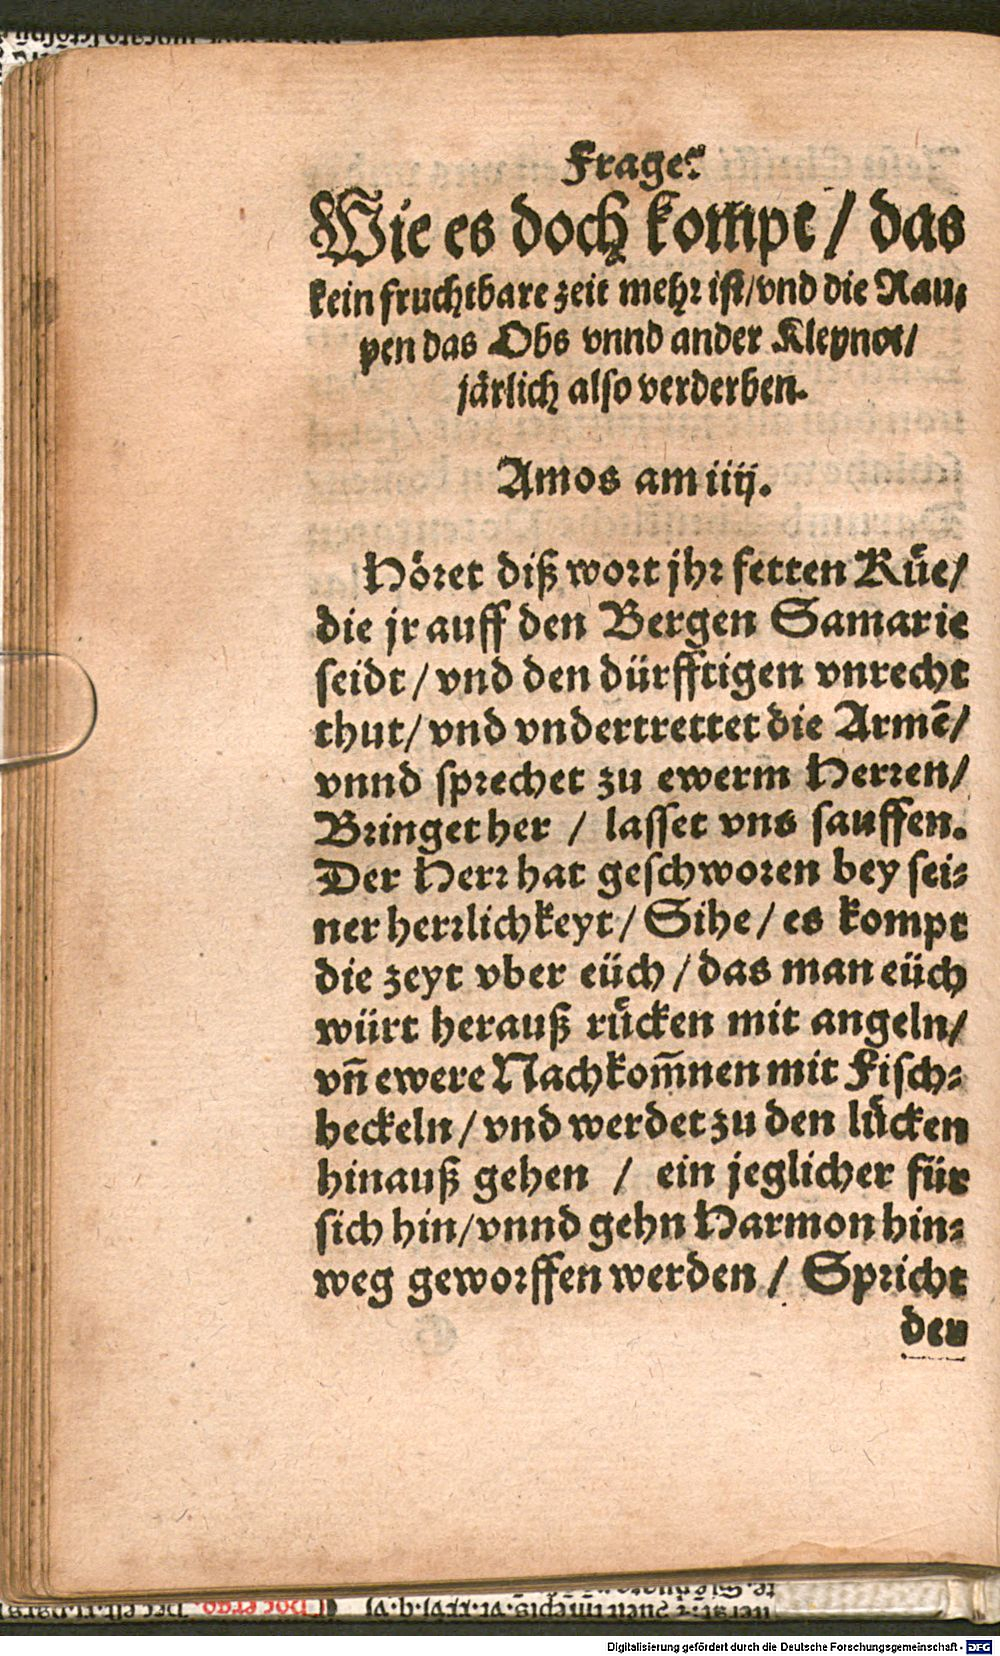 Frage.
Wie es doch kompt / das
kein fruchtbare zeit mehr ist / vnd die Rau⸗
pen das Obs vnnd ander Kleynot /
järlich also verderben.
Amos am iiij.
Höret diß wort jhr fetten Küe /
die jr auff den Bergen Samarie
seidt / vnd den dürfftigen vnrecht
thut / vnd vndertrettet die Armē /
vnnd sprechet zu ewerm Herren /
Bringet her / lasset vns sauffen.
Der Herr hat geschworen bey sei⸗
ner herrlichkeyt / Sihe / es kompt
die zeyt vber eüch / das man eüch
würt herauß rücken mit angeln /
vñ ewere Nachkom̃nen mit Fisch⸗
heckeln / vnd werdet zu den lücken
hinauß gehen / ein jeglicher für
sich hin / vnnd gehn Harmon hin⸗
weg geworffen werden / Spricht
der
Digitalisierung gefördert durch die Deutsche Forschungsgemeinschaft - DFG